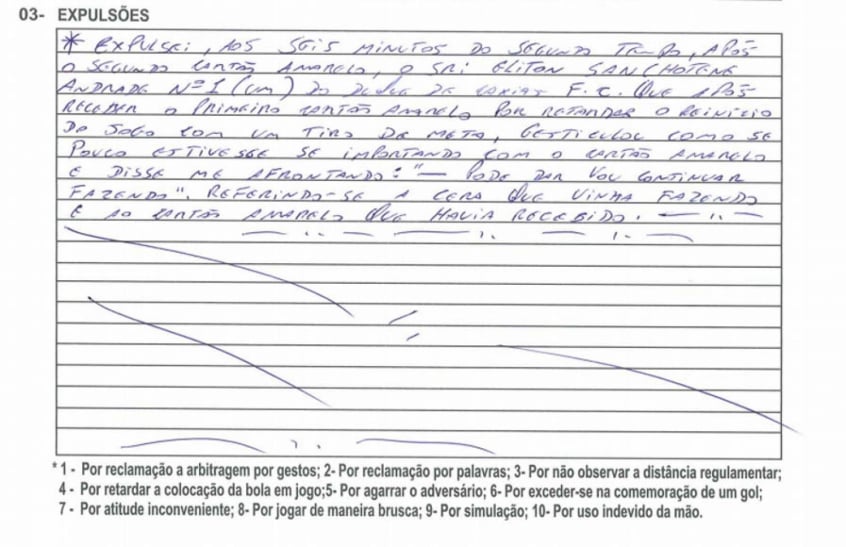 03- EXPULSÕES
* EXPULSEI, AOS SEIS MINUTOS DO SEGUNDO TEMPO, APÓS
O SEGUNDO CARTÃO AMARELO, O SR: ELITON SANCHOTENE
ANDRADE Nº 1 (UM) DO DUQUE DE CAXIAS F.C. QUE APÓS
RECEBER O PRIMEIRO CARTÃO AMARELO POR RETARDAR O REINÍCIO
DO JOGO COM UM TIRO DE META, GESTICULOU COMO SE
POUCO ESTIVESSE SE IMPORTANDO COM O CARTÃO AMARELO
E DISSE ME AFRONTANDO: "— PODE DAR VOU CONTINUAR
FAZENDO". REFERINDO-SE A CERA QUE VINHA FAZENDO
E AO CARTÃO AMARELO QUE HAVIA RECEBIDO.
* 1 - Por reclamação a arbitragem por gestos; 2- Por reclamação por palavras; 3- Por não observar a distância regulamentar;
4 - Por retardar a colocação da bola em jogo;5- Por agarrar o adversário; 6- Por exceder-se na comemoração de um gol;
7 - Por atitude inconveniente; 8- Por jogar de maneira brusca; 9- Por simulação; 10- Por uso indevido da mão.